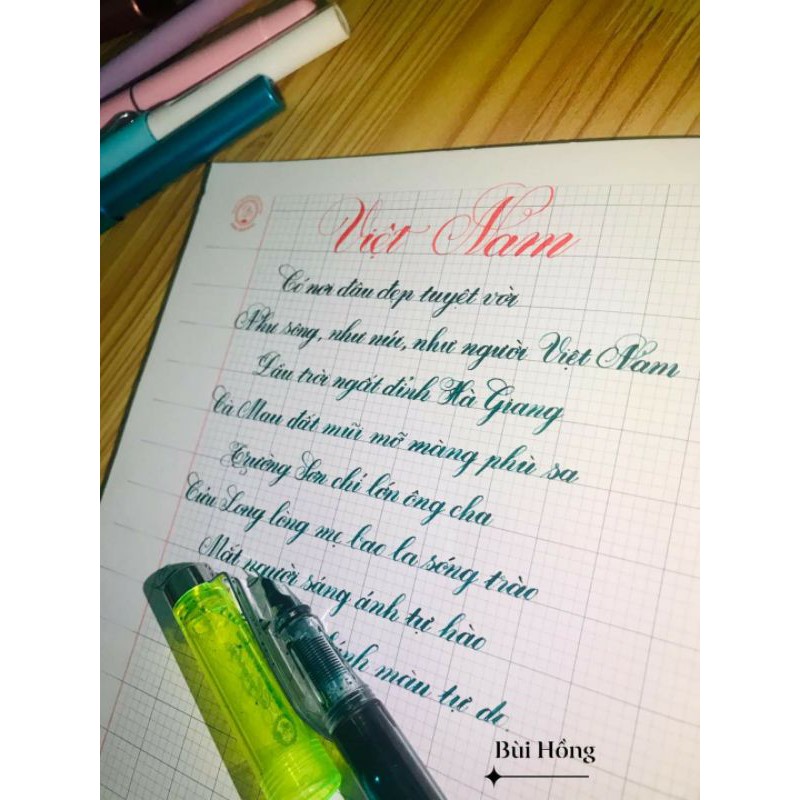 Việt Nam
Có nơi đâu đẹp tuyệt vời
Như sông, như núi, như người Việt Nam
Đầu trời ngất đỉnh Hà Giang
Cà Mau đất mũi mỡ màng phù sa
Trường Sơn chí lớn ông cha
Cửu Long lòng mẹ bao la sóng trào
Mắt người sáng ánh tự hào
màu tự do
Bùi Hồng